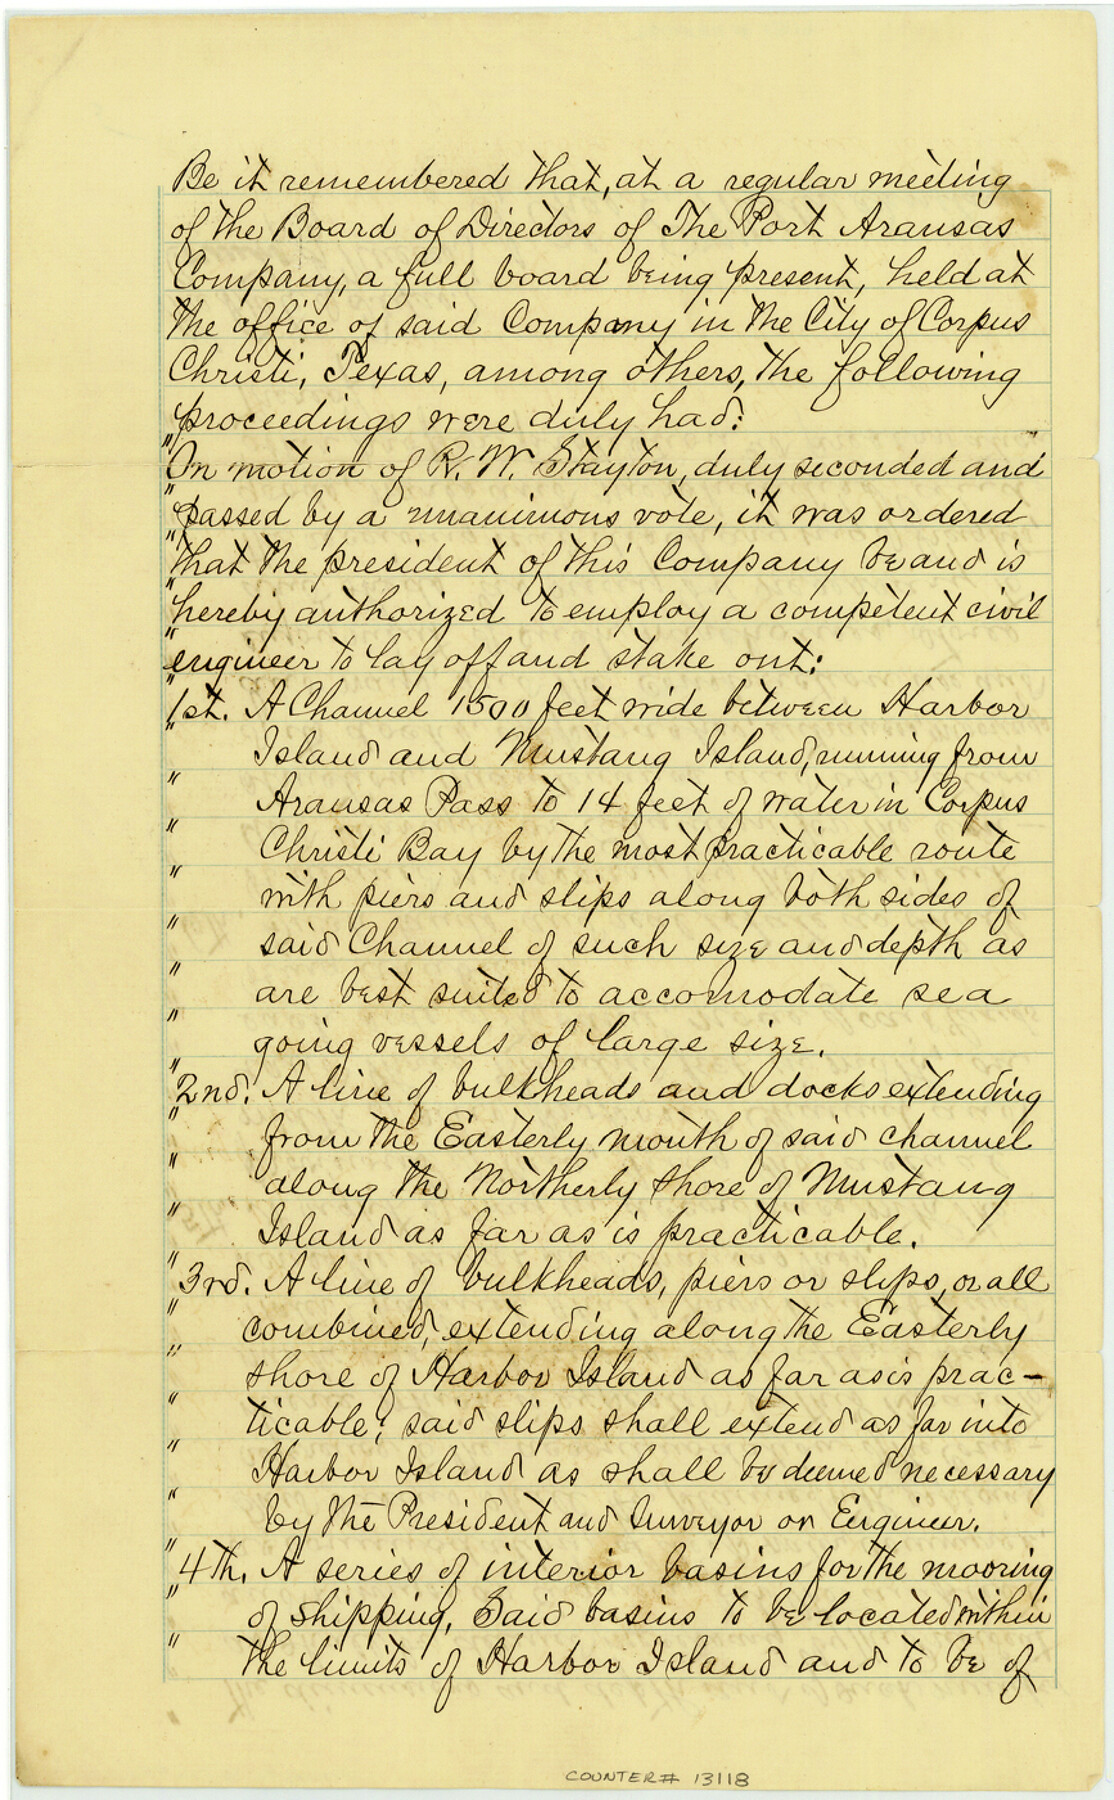 Be it remembered that, at a regular meeting
of the Board of Directors of The Port Aransas
Company, a full board being present, held at
the office of said Company in the City of Corpus
Christi, Texas, among others, the following
proceedings were duly had:
"On motion of R. W. Stayton, duly seconded and
"passed by a unanimous vote, it was ordered
"that the president of this Company be and is
"hereby authorized to employ a competent civil
"engineer to lay off and stake out:
"1st. A Channel 1500 feet wide between Harbor
" Island and Mustang Island, running from
" Aransas Pass to 14 feet of water in Corpus
" Christi Bay by the most practicable route
" with piers and slips along both sides of
" said Channel of such size and depth as
" are best suited to accomodate sea
" going vessels of large size.
"2nd. A line of bulkheads and docks extending
" from the Easterly mouth of said channel
" along the Northerly shore of Mustang
" Island as far as is practicable.
"3rd. A line of bulkheads, piers or slips, or all
" combined, extending along the Easterly
" shore of Harbor Island as far as is prac-
" ticable; said slips shall extend as far into
" Harbor Island as shall be deemed necessary
" by the President and Surveyor or Engineer.
"4th. A series of interior basins for the mooring
" of shipping, Said basins to be located within
" the limits of Harbor Island and to be of
COUNTER# 13118